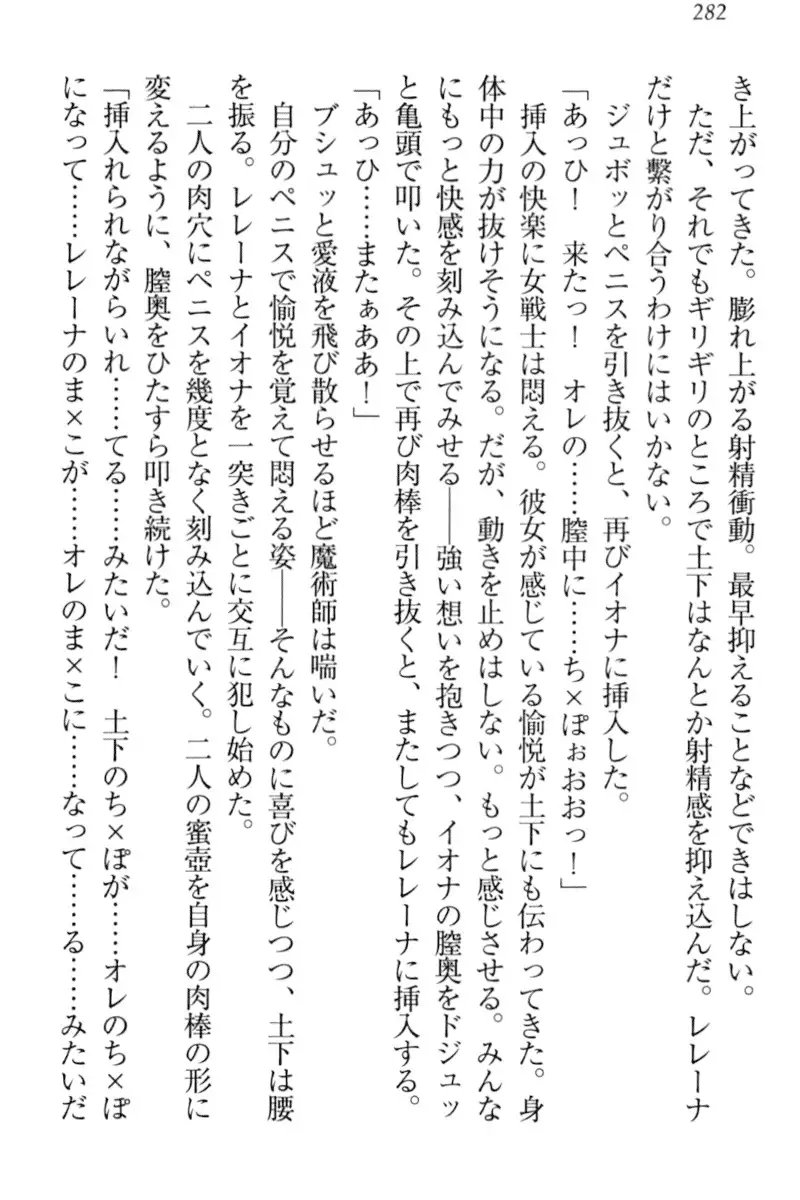 282
き上がってきた。膨れ上がる射精衝動。最早抑えることなどできはしない。
ただ、それでもギリギリのところで土下はなんとか射精感を抑え込んだ。レレーナ
だけと繋がり合うわけにはいかない。
ジュボッとペニスを引き抜くと、再びイオナに挿入した。
「あっひ！　来たっ！　オレの……膣中に……ち×ぽぉおおっ！」
挿入の快楽に女戦士は悶える。彼女が感じている愉悦が土下にも伝わってきた。身
体中の力が抜けそうになる。だが、動きを止めはしない。もっと感じさせる。みんな
にもっと快感を刻み込んでみせる――強い想いを抱きつつ、イオナの膣奥をドジュッ
と亀頭で叩いた。その上で再び肉棒を引き抜くと、またしてもレレーナに挿入する。
「あっひ……またぁああ！」
ブシュッと愛液を飛び散らせるほど魔術師は喘いだ。
自分のペニスで愉悦を覚えて悶える姿――そんなものに喜びを感じつつ、土下は腰
を振る。レレーナとイオナを一突きごとに交互に犯し始めた。
二人の肉穴にペニスを幾度となく刻み込んでいく。二人の蜜壺を自身の肉棒の形に
変えるように、膣奥をひたすら叩き続けた。
「挿入れられながらいれ……てる……みたいだ！　土下のち×ぽが……オレのち×ぽ
になって……レレーナのま×こが……オレのま×こに……なって……る……みたいだ